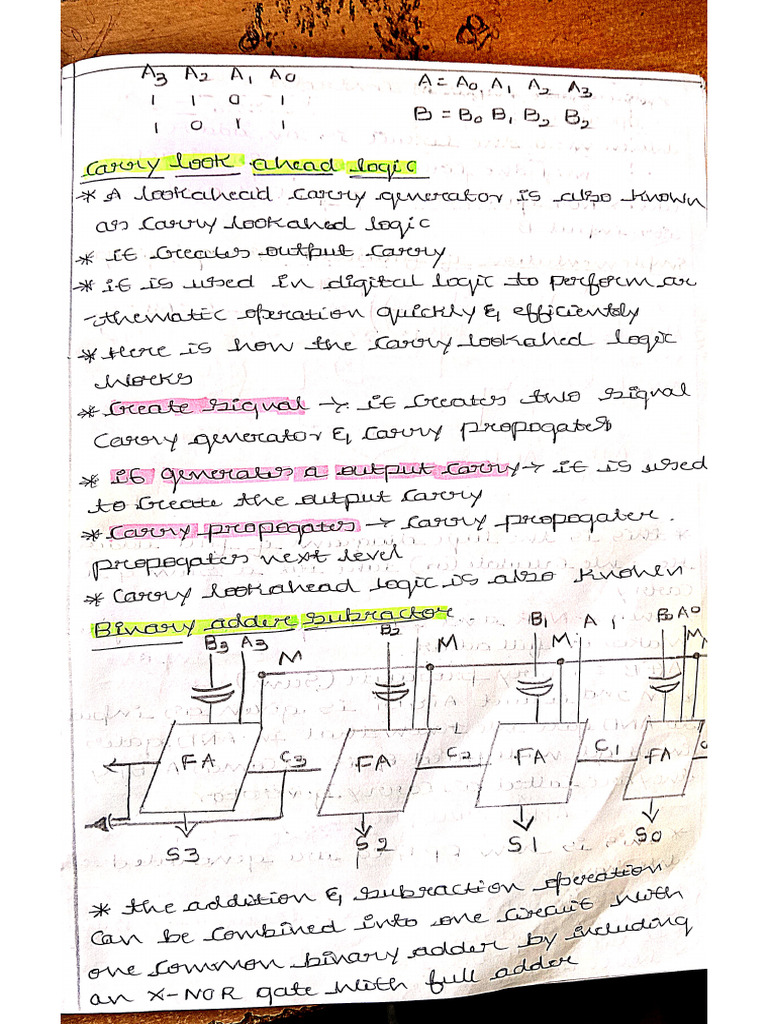 A3 A2 A1 A0
1 1 0 1
1 0 1 1
A = A0, A1 A2 A3
B = B0 B1 B2 B2
Carry look ahead logic
* A lookahead carry generator is also known
as carry lookahed logic
* it creates output carry
* it is used in digital logic to perform ar
-thematic operation quickly & efficiently
* Here is how the carry lookahed logic
works
* Create signal → it creates two signal
carry generator & carry propogates
* it generates a output carry → it is used
to create the output carry
* Carry propogates → carry propogater.
propogates next level
* Carry lookahead logic is also known
Binary adder subractor
B3 A3 M B2 M B1 A1 M B0 A0 M
FA C3 FA C2 FA C1 FA
S3 S2 S1 S0
* the addition & subraction operation
can be combined into one circuit with
one common binary adder by including
an X-NOR gate with full adder